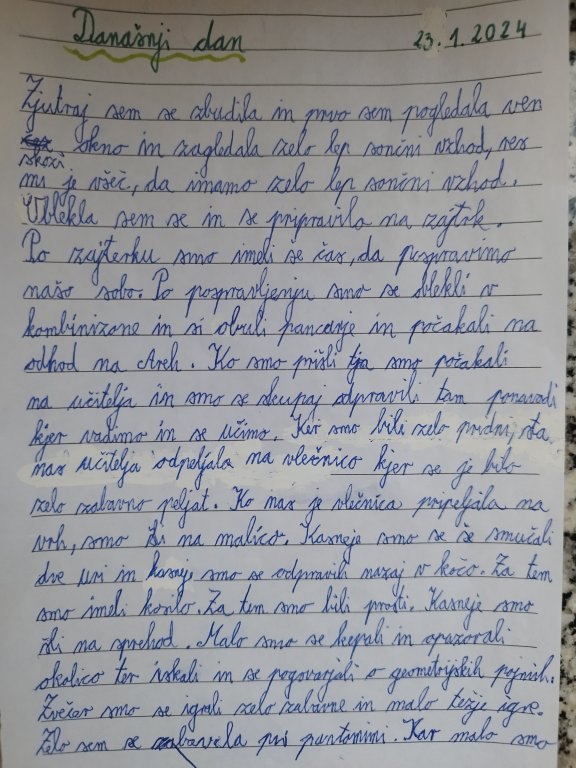 Današnji dan
23.1.2024
Zjutraj sem se zbudila in prvo sem pogledala ven
skozi okno in zagledala zelo lep sončni vzhod, res
mi je všeč, da imamo zelo lep sončni vzhod.
Oblekla sem se in se pripravila na zajtrk.
Po zajterku smo imeli še čas, da pospravimo
našo sobo. Po pospravljenju smo se oblekli v
kombinizone in si obuli pancarje in počakali na
odhod na Areh. Ko smo prišli tja smo počakali
na učitelja in smo se skupaj odpravili tam ponavadi
kjer vadimo in se učimo. Ker smo bili zelo pridni, sta
nas učitelja odpeljala na vlečnico kjer se je bilo
zelo zabavno peljat. Ko nas je vlečnica pripeljala na
vrh, smo šli na malico. Kasneje smo se še smučali
dve uri in kasneje smo se odpravili nazaj v kočo. Za tem
smo imeli kosilo. Za tem smo bili prosti. Kasneje smo
šli na sprehod. Malo smo se kepali in opazorali
okolico ter iskali in se pogovarjali o geometrijskih pojmih.
Zvečer smo se igrali zelo zabavne in malo težje igre.
Zelo sem se zabavala pri pantomimi. Kar malo smo